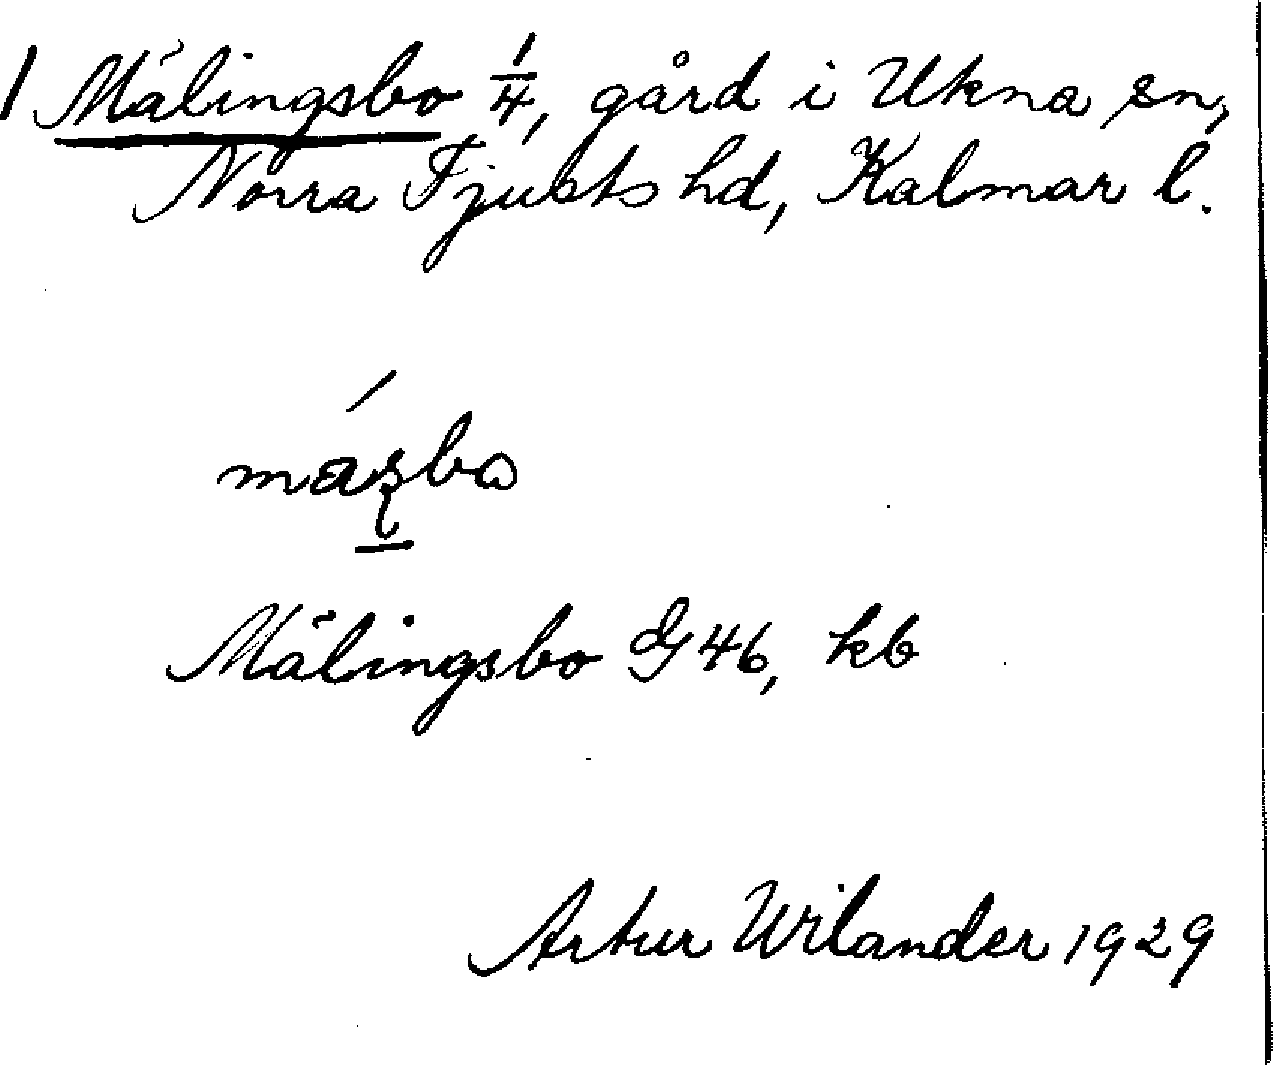 1 Målingsbo 1/4, gård i Ukna sn,
Norra Tjusts hd, Kalmar l.
Målingsbo G 46, kb
Artur Wilander 1929